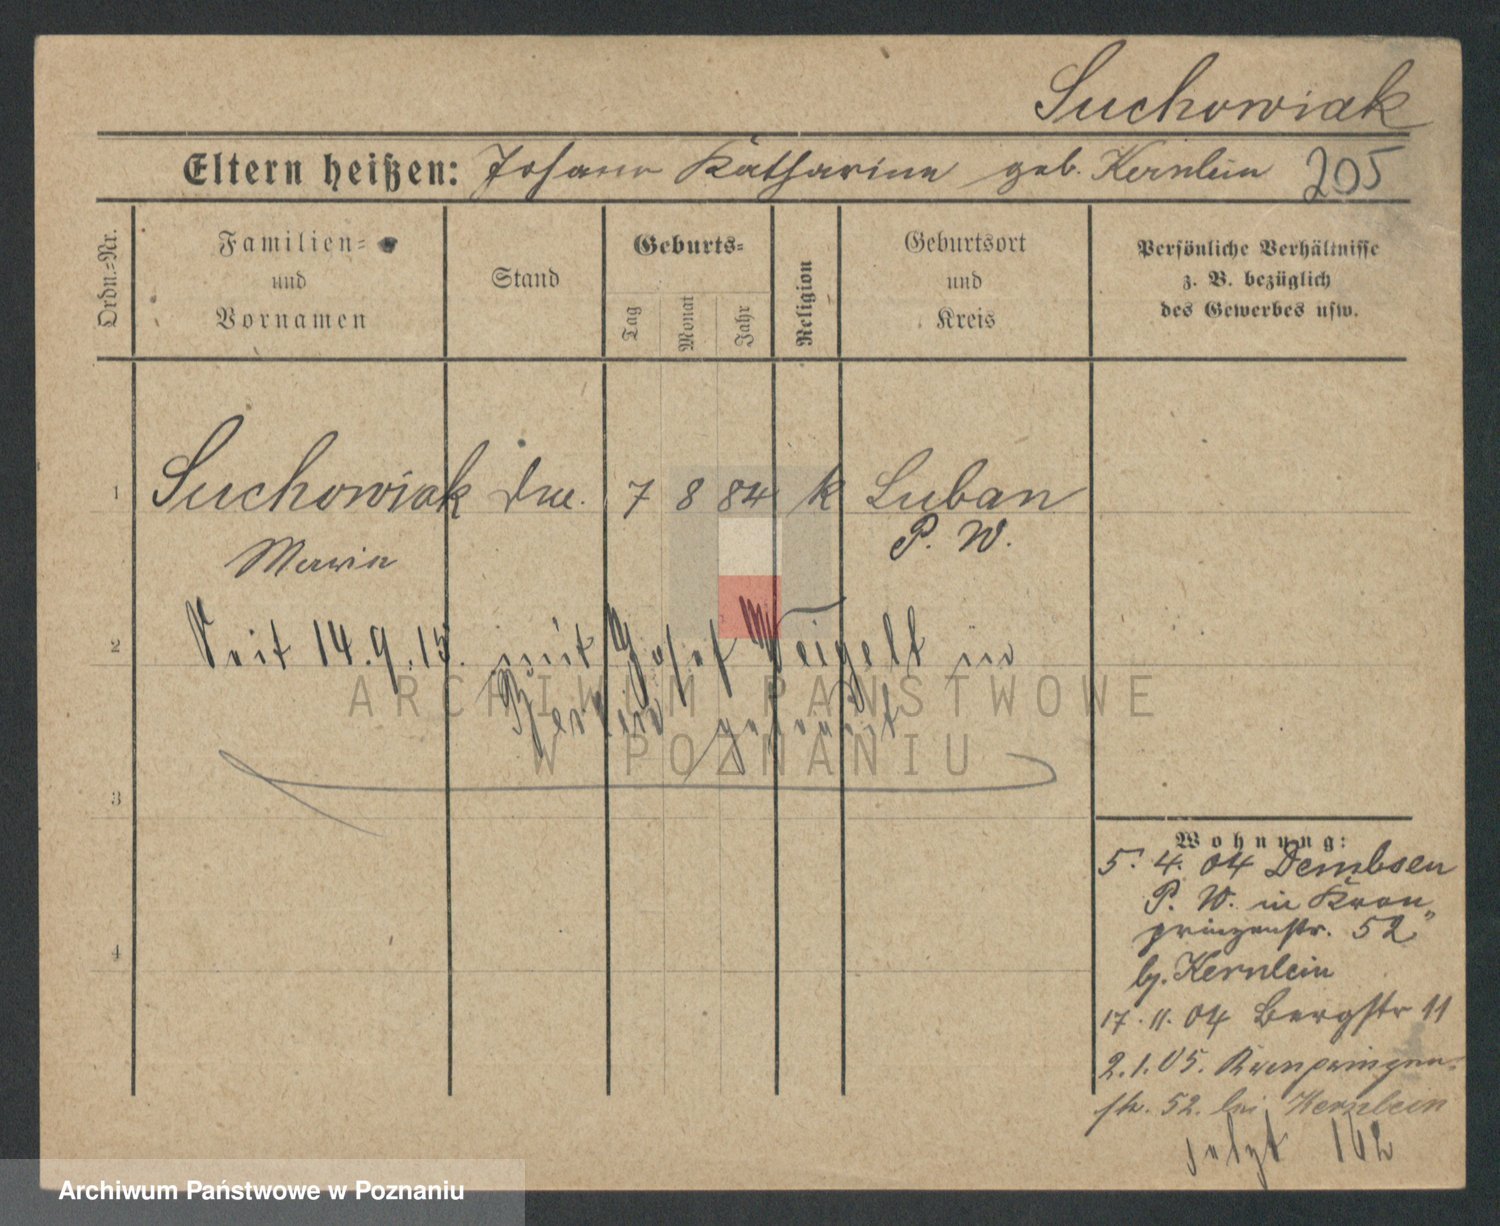 Suchowiak
Eltern heißen: Johann Katharina geb. Kernlein 205
Ordn.=Nr.
Familien=
und
Vornamen
Stand
Geburts=
Tag
Monat
Jahr
Religion
Geburtsort
und
Kreis
Persönliche Verhältnisse
z. B. bezüglich
des Gewerbes usw.
1 Suchowiak 7 8 84 k Luban
Maria P. W.
2 Seit 14.9.15. mit Josef Weigelt in
Berlin getraut
3
4
Wohnung:
5. 4. 04 Dembsen
P. W. in Kron„
prinzenstr. 52"
by. Kernlein
17. 11. 04 Bergstr 11
2.1.05. Kronprinzen
str. 52. bei Kernlein
162
ARCHIWUM PAŃSTWOWE
W POZNANIU
Archiwum Państwowe w Poznaniu